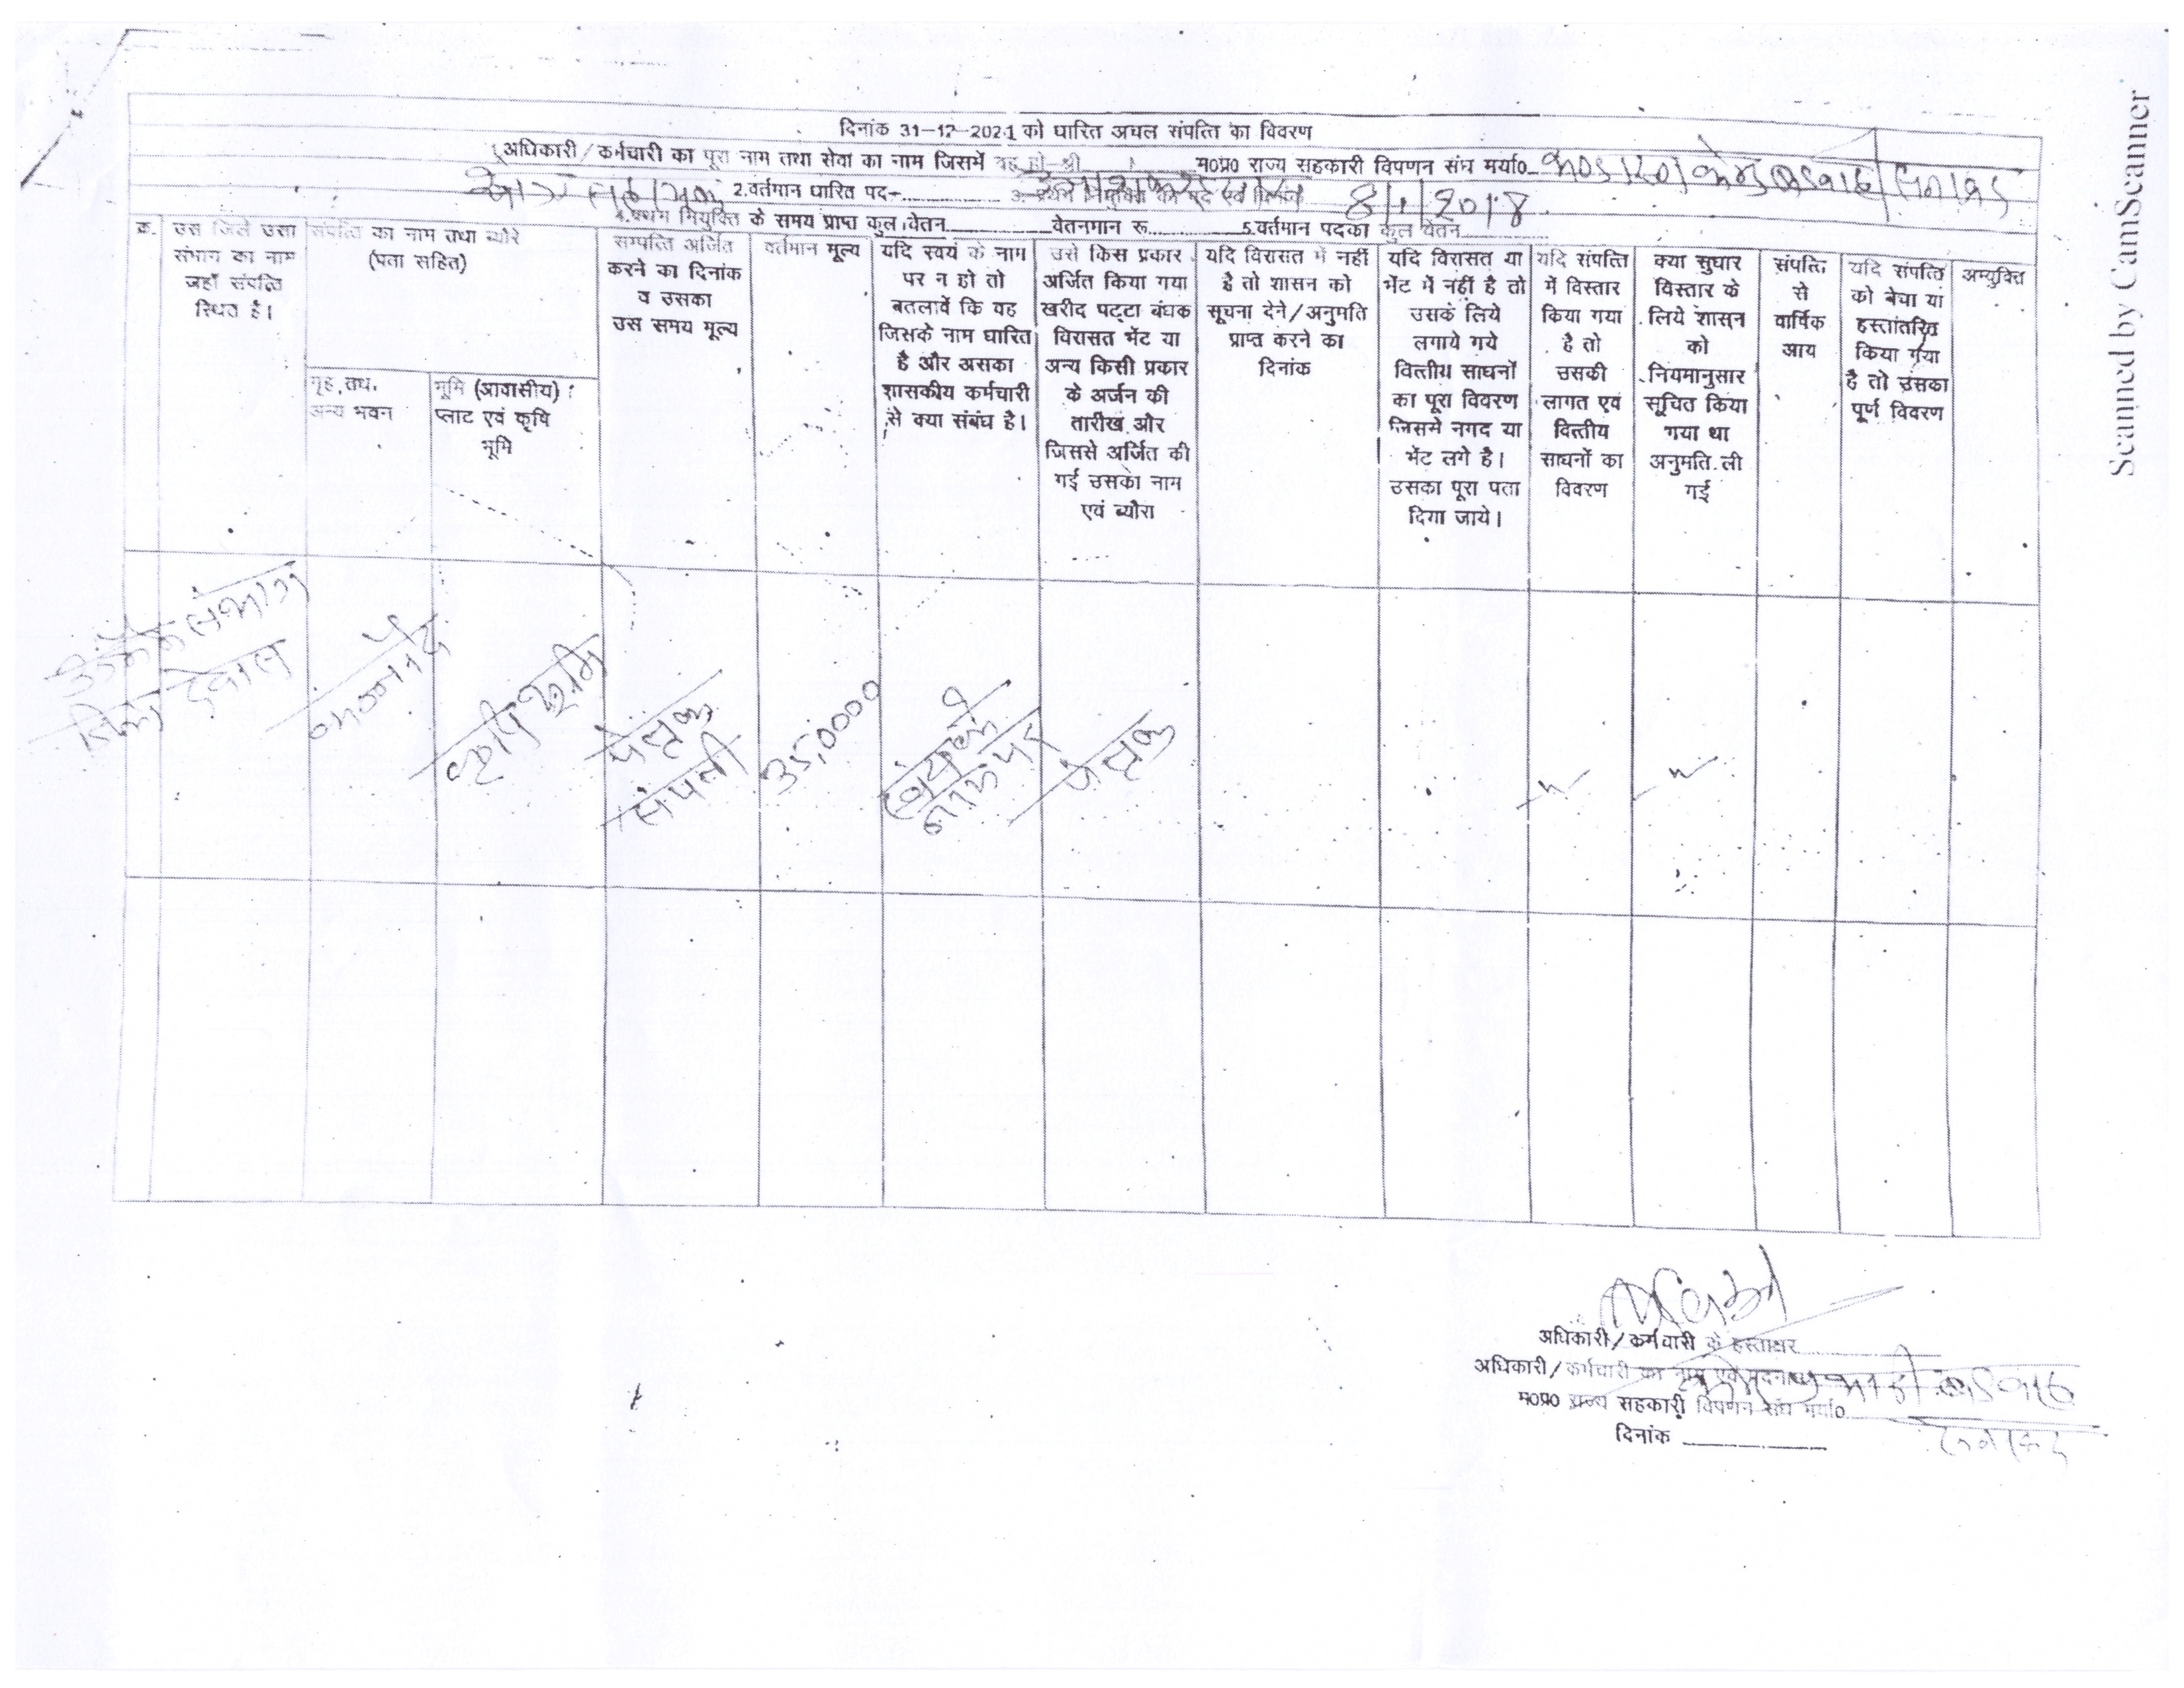 दिनांक 31-12-2021 को धारित अचल संपत्ति का विवरण
अधिकारी/कर्मचारी का पूरा नाम तथा सेवा का नाम जिसमें वह हो-श्री म०प्र० राज्य सहकारी विपणन संघ मर्या०
2.वर्तमान धारित पद- 8/1/2018
4.प्रथम नियुक्ति के समय प्राप्त कुल वेतन वेतनमान रू. 5.वर्तमान पदका कुल वेतन
क्र.
उस जिले उस
संभाग का नाम
जहाँ संपत्ति
स्थित है।
संपत्ति का नाम तथा ब्योरे
(पता सहित)
गृह,तथा
अन्य भवन
भूमि (आवासीय)
प्लाट एवं कृषि
भूमि
सम्पत्ति अर्जित
करने का दिनांक
व उसका
उस समय मूल्य
वर्तमान मूल्य
यदि स्वयं के नाम
पर न हो तो
बतलावें कि वह
जिसके नाम धारित
है और असका
शासकीय कर्मचारी
से क्या संबंध है।
उसे किस प्रकार
अर्जित किया गया
खरीद पट्टा बंधक
विरासत भेंट या
अन्य किसी प्रकार
के अर्जन की
तारीख और
जिससे अर्जित की
गई उसका नाम
एवं ब्यौरा
यदि विरासत में नहीं
है तो शासन को
सूचना देने/अनुमति
प्राप्त करने का
दिनांक
यदि विरासत या
भेंट में नहीं है तो
उसके लिये
लगाये गये
वित्तीय साधनों
का पूरा विवरण
जिसमे नगद या
भेंट लगे है।
उसका पूरा पता
दिया जाये।
यदि संपत्ति
में विस्तार
किया गया
है तो
उसकी
लागत एवं
वित्तीय
साधनों का
विवरण
क्या सुधार
विस्तार के
लिये शासन
को
नियमानुसार
सूचित किया
गया था
अनुमति ली
गई
संपत्ति
से
वार्षिक
आय
यदि संपत्ति
को बेचा या
हस्तांतरित
किया गया
है तो उसका
पूर्ण विवरण
अभ्युक्ति
संभाग
देवास
कन्नौद
कृषि भूमि
पैतृक
संपत्ती
35,0000
स्वंय के
नाम पर
पैतृक
अधिकारी/कर्मचारी के हस्ताक्षर
अधिकारी/कर्मचारी का नाम एवं पदनाम
म०प्र० राज्य सहकारी विपणन संघ मर्या०
दिनांक
Scanned by CamScanner